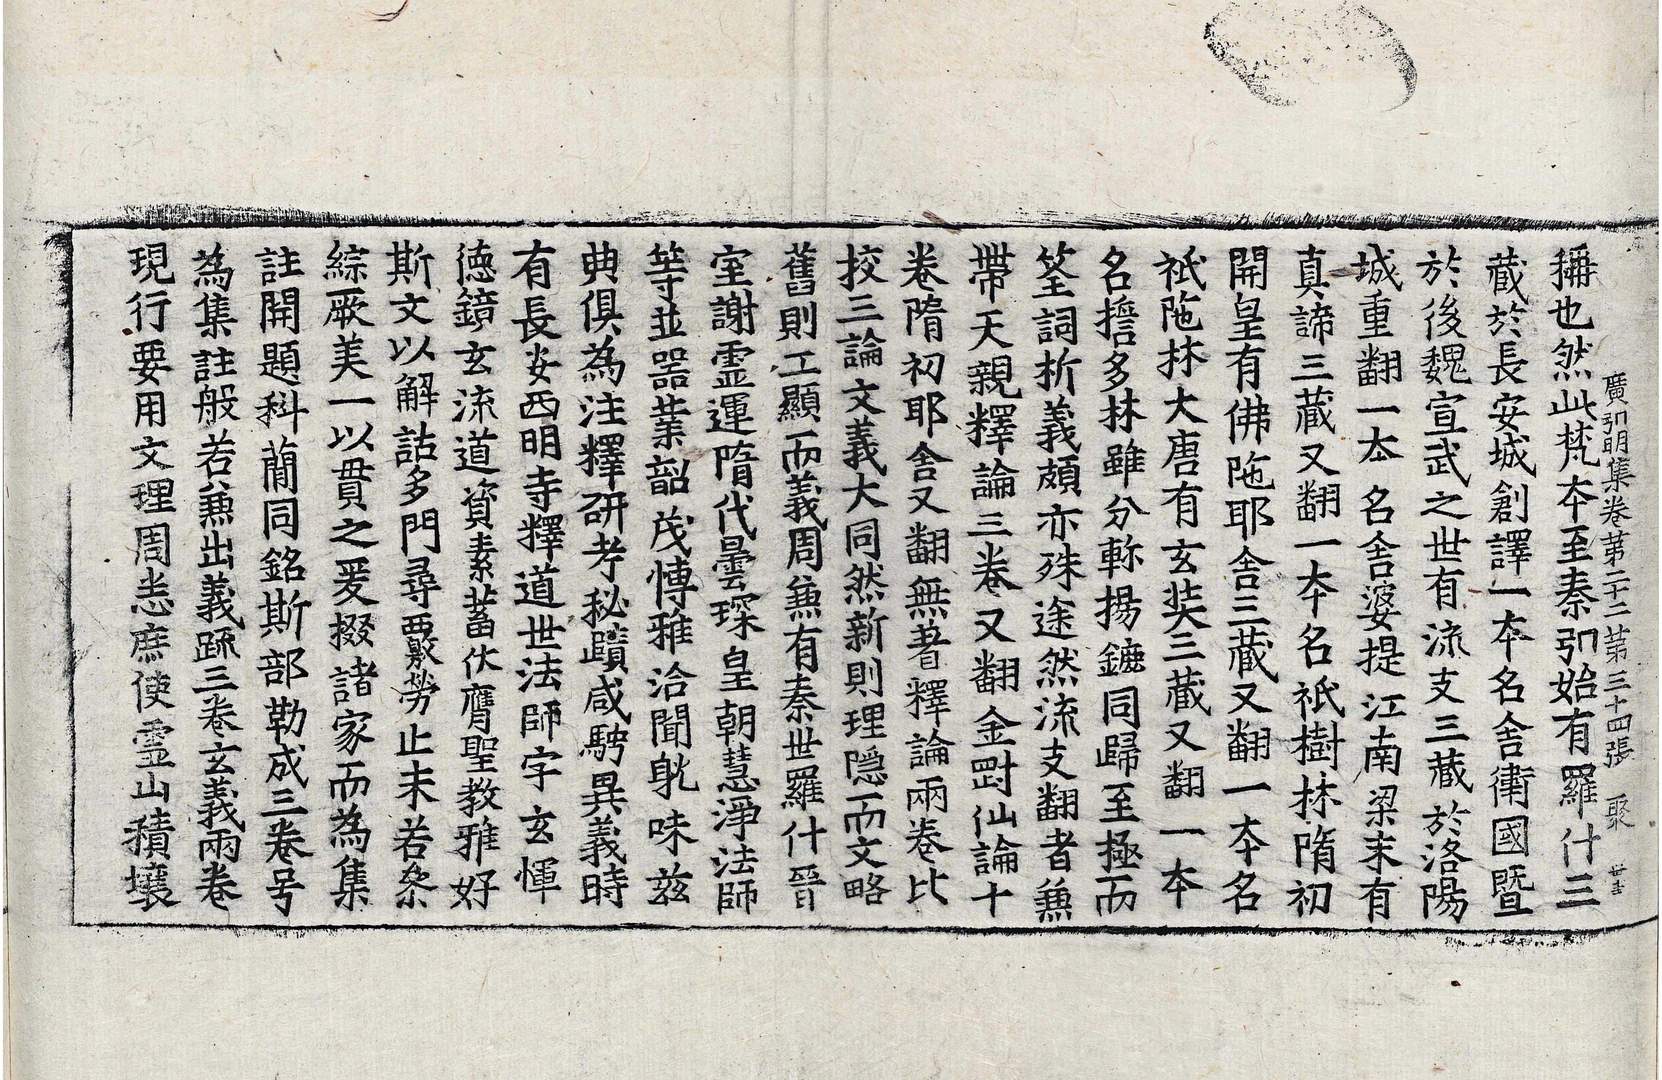 廣弘明集卷第二十二 第三十四張 聚
稱也然此梵夲至秦弘始有羅什三
藏於長安城創譯一夲名舍衛國暨
於後魏宣武之世有流支三藏於洛陽
城重翻一夲名舍婆提江南梁末有
真諦三藏又翻一夲名祇樹林隋初
開皇有佛陁耶舍三藏又翻一夲名
祇陁林大唐有玄奘三藏又翻一夲
名擔多林雖分軫揚鑣同歸至極而
筌詞析義頗亦殊途然流支翻者兼
帶天親釋論三卷又翻金剛仙論十
卷隋初耶舍又翻無著釋論兩卷比
挍三論文義大同然新則理隱而文略
舊則工顯而義周兼有秦世羅什晉
室謝靈運隋代曇琛皇朝慧淨法師
等並器業韶茂博雅洽聞耽味茲
典俱為注釋研考秘賾咸騁異義時
有長安西明寺釋道世法師字玄惲
德鏡玄流道資素蓄伏膺聖教雅好
斯文以解詁多門尋覈勞止未若叅
綜厥美一以貫之爰掇諸家而為集
註開題科簡同銘斯部勒成三卷号
為集註般若兼出義䟽三卷玄義兩卷
現行要用文理周悉庶使靈山積壤